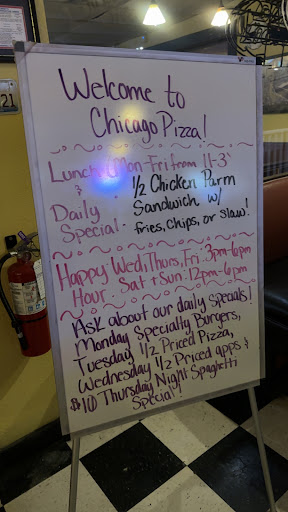 21
Welcome to
Chicago Pizza!
Lunch (Mon-Fri from 11-3)
&
Daily
Special.
1/2 Chicken Parm
Sandwich w/
fries, chips, or slaw!
Happy Wed, Thurs, Fri. 3pm-6pm
Hour. Sat + Sun: 12pm-6pm
Ask about our daily specials!
Monday Specialty Burgers,
Tuesday 1/2 Priced Pizza,
Wednesday 1/2 Priced apps &
$10 Thursday Night Spaghetti
Special!